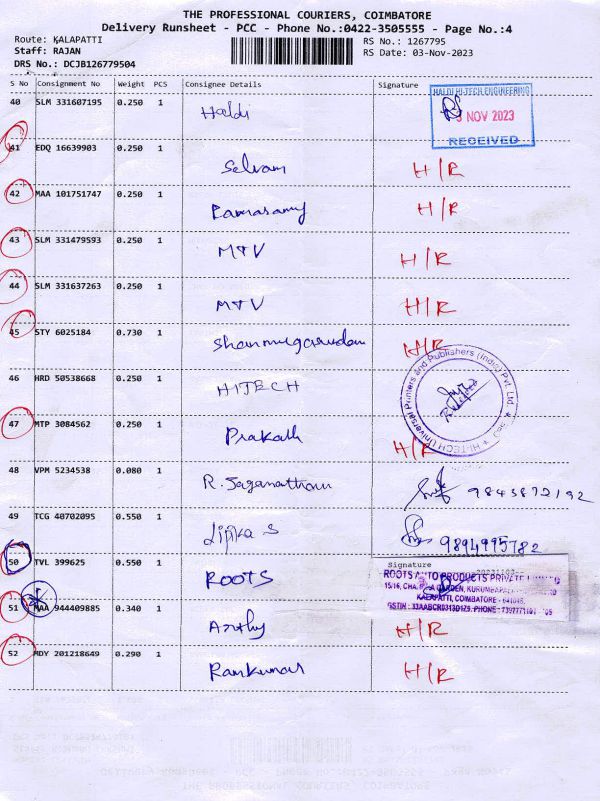 THE PROFESSIONAL COURIERS, COIMBATORE
Delivery Runsheet - PCC - Phone No.:0422-3505555 - Page No.:4
Route: KALAPATTI
Staff: RAJAN
DRS No.: DCJB126779504
RS No.: 1267795
RS Date: 03-Nov-2023
S No Consignment No Weight PCS Consignee Details Signature
40 SLM 331607195 0.250 1 Haldi
HALDI HI-TECH ENGINEERING
3 NOV 2023
RECEIVED
41 EDQ 16639903 0.250 1 Selvam H/R
42 MAA 101751747 0.250 1 Ramasamy H/R
43 SLM 331479593 0.250 1 MTV H/R
44 SLM 331637263 0.250 1 MTV H/R
45 STY 6025184 0.730 1 Shanmugasundam H/R
46 HRD 50538668 0.250 1 HITECH
HI-TECH Universal Printers and Publishers (India) Pvt. Ltd.
47 MTP 3084562 0.250 1 Prakash H/R
48 VPM 5234538 0.080 1 R. Jaganathan 9843872192
49 TCG 40702095 0.550 1 Lipika S 9894995782
50 TVL 399625 0.550 1 ROOTS
Signature
ROOTS AUTO PRODUCTS PRIVATE
KALAPATTI, COIMBATORE - 641048.
51 MAA 944409885 0.340 1 H/R
52 MDY 201218649 0.290 1 Ramkumar H/R